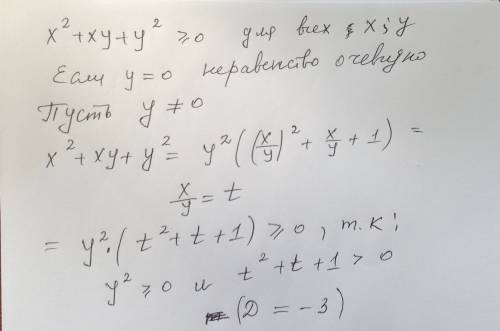 x² + xy + y² ⩾ 0 для всех x; y
Если y = 0 неравенство очевидно
Пусть y ≠ 0
x² + xy + y² = y²((x/y)² + x/y + 1) =
x/y = t
= y²·(t² + t + 1) ⩾ 0, т.к:
y² ⩾ 0 и t² + t + 1 > 0
(D = -3)